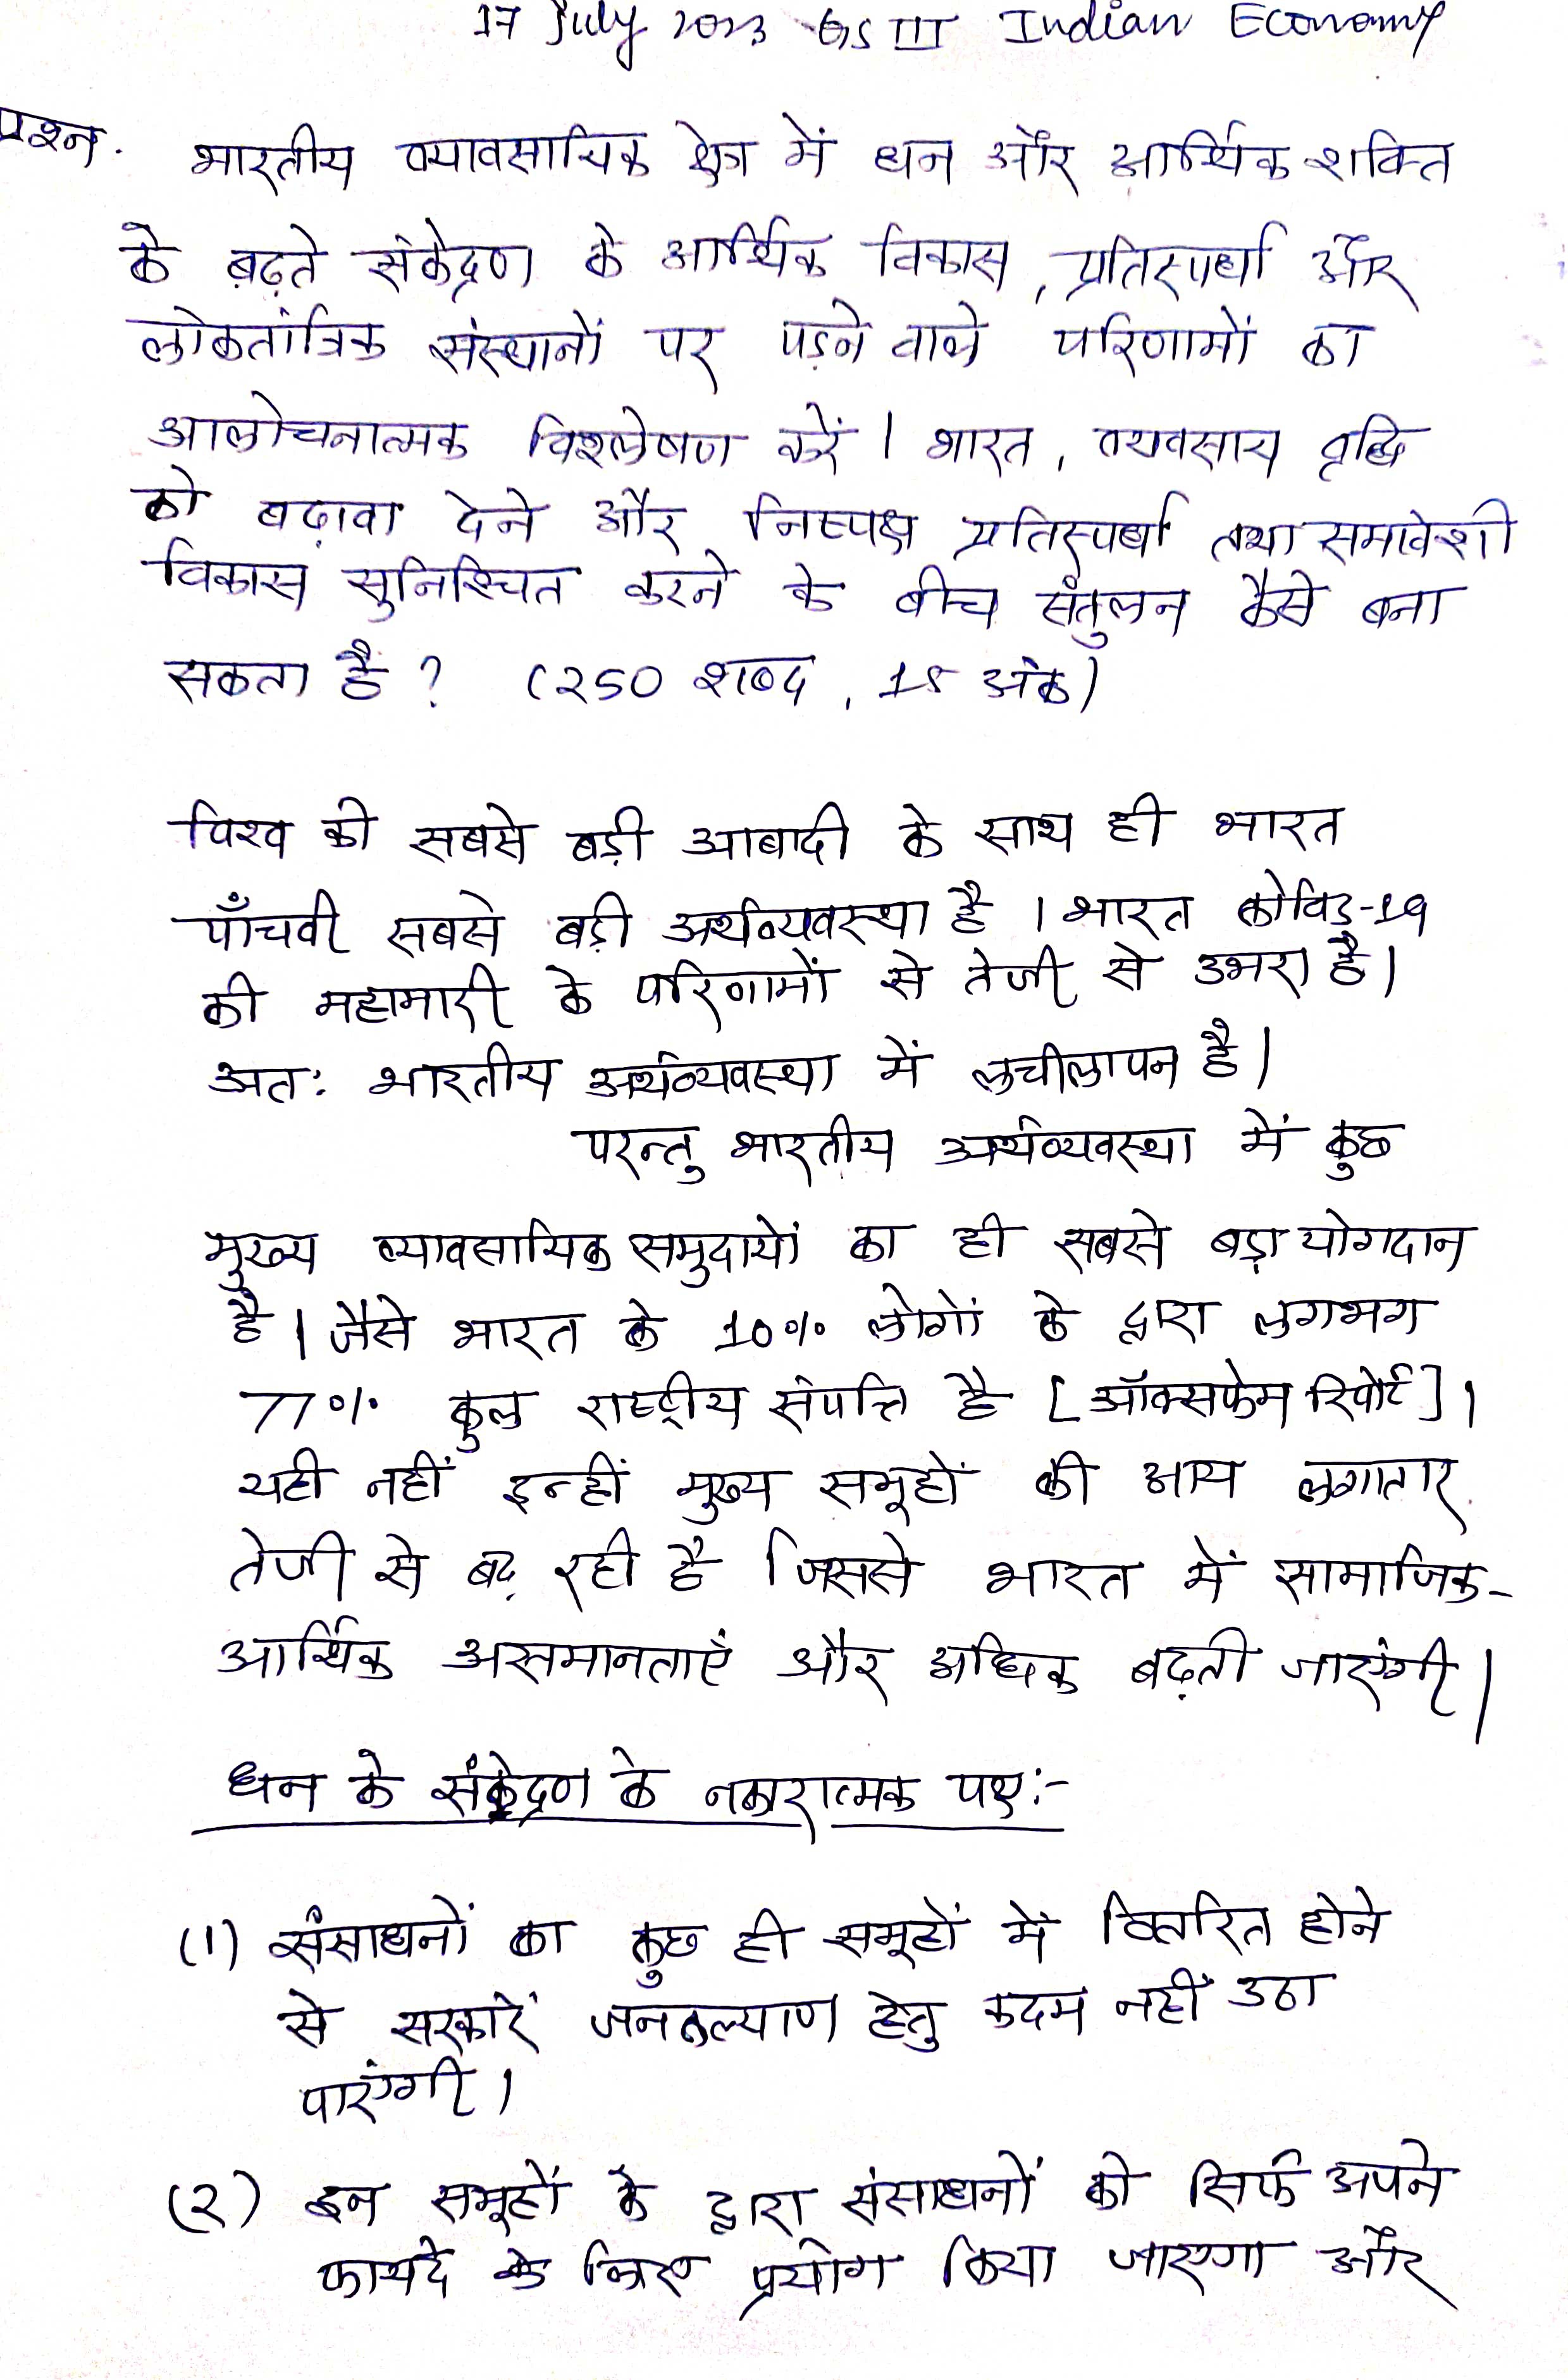 17 July 2023 GS III Indian Economy
प्रश्न. भारतीय व्यावसायिक क्षेत्र में धन और आर्थिक शक्ति
के बढ़ते संकेंद्रण के आर्थिक विकास, प्रतिस्पर्धा और
लोकतांत्रिक संस्थानों पर पड़ने वाले परिणामों का
आलोचनात्मक विश्लेषण करें। भारत, व्यवसाय वृद्धि
को बढ़ावा देने और निष्पक्ष प्रतिस्पर्धा तथा समावेशी
विकास सुनिश्चित करने के बीच संतुलन कैसे बना
सकता है? (250 शब्द, 15 अंक)
विश्व की सबसे बड़ी आबादी के साथ ही भारत
पाँचवी सबसे बड़ी अर्थव्यवस्था है। भारत कोविड-19
की महामारी के परिणामों से तेजी से उभरा है।
अतः भारतीय अर्थव्यवस्था में लचीलापन है।
परन्तु भारतीय अर्थव्यवस्था में कुछ
मुख्य व्यावसायिक समुदायों का ही सबसे बड़ा योगदान
है। जैसे भारत के 10% लोगों के द्वारा लगभग
77% कुल राष्ट्रीय संपत्ति है [ऑक्सफेम रिपोर्ट]।
यही नहीं इन्हीं मुख्य समूहों की आय लगातार
तेजी से बढ़ रही है जिससे भारत में सामाजिक-
आर्थिक असमानताएं और अधिक बढ़ती जाएंगी।
धन के संकेद्रण के नकारात्मक पक्ष:-
(1) संसाधनों का कुछ ही समूहों में वितरित होने
से सरकारें जनकल्याण हेतु कदम नहीं उठा
पाएंगी।
(2) इन समूहों के द्वारा संसाधनों को सिर्फ अपने
फायदे के लिए प्रयोग किया जाएगा और